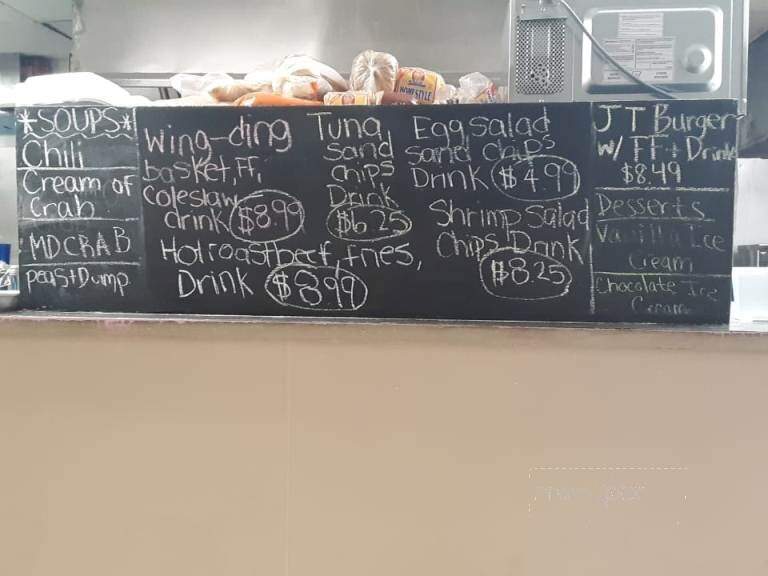 *SOUPS*
Chili
Cream of
Crab
MD CRAB
peastDump
Wing-ding
basket, FF,
Coleslaw
drink $8.99
Hot roast beef, fries,
Drink $8.99
Tuna
Sand
chips
Drink
$6.25
Egg salad
sand chips
Drink $4.99
Shrimp Salad
Chips Drink
$8.25
JT Burger
w/ FF + Drink
$8.49
Desserts
Vanilla Ice
Cream
Chocolate Ice
Cream
HOMESTYLE